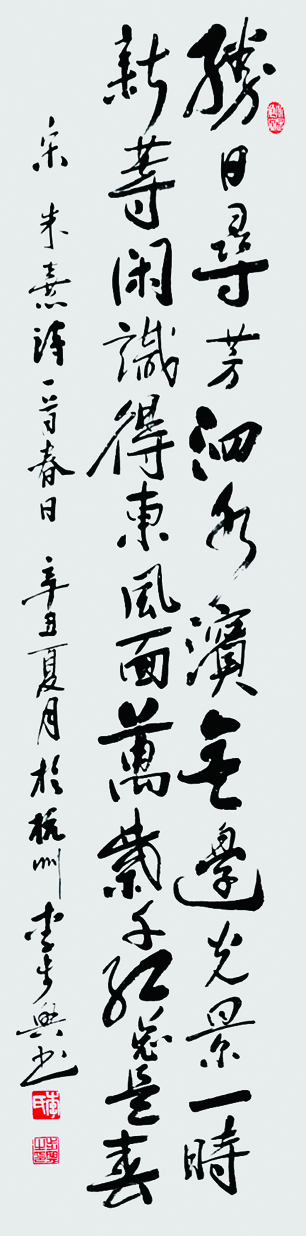 勝日尋芳泗水濱無邊光景一時
新等閑識得東風面萬紫千紅總是春
宋朱熹詩一首春日 辛丑夏月於杭州李步興書